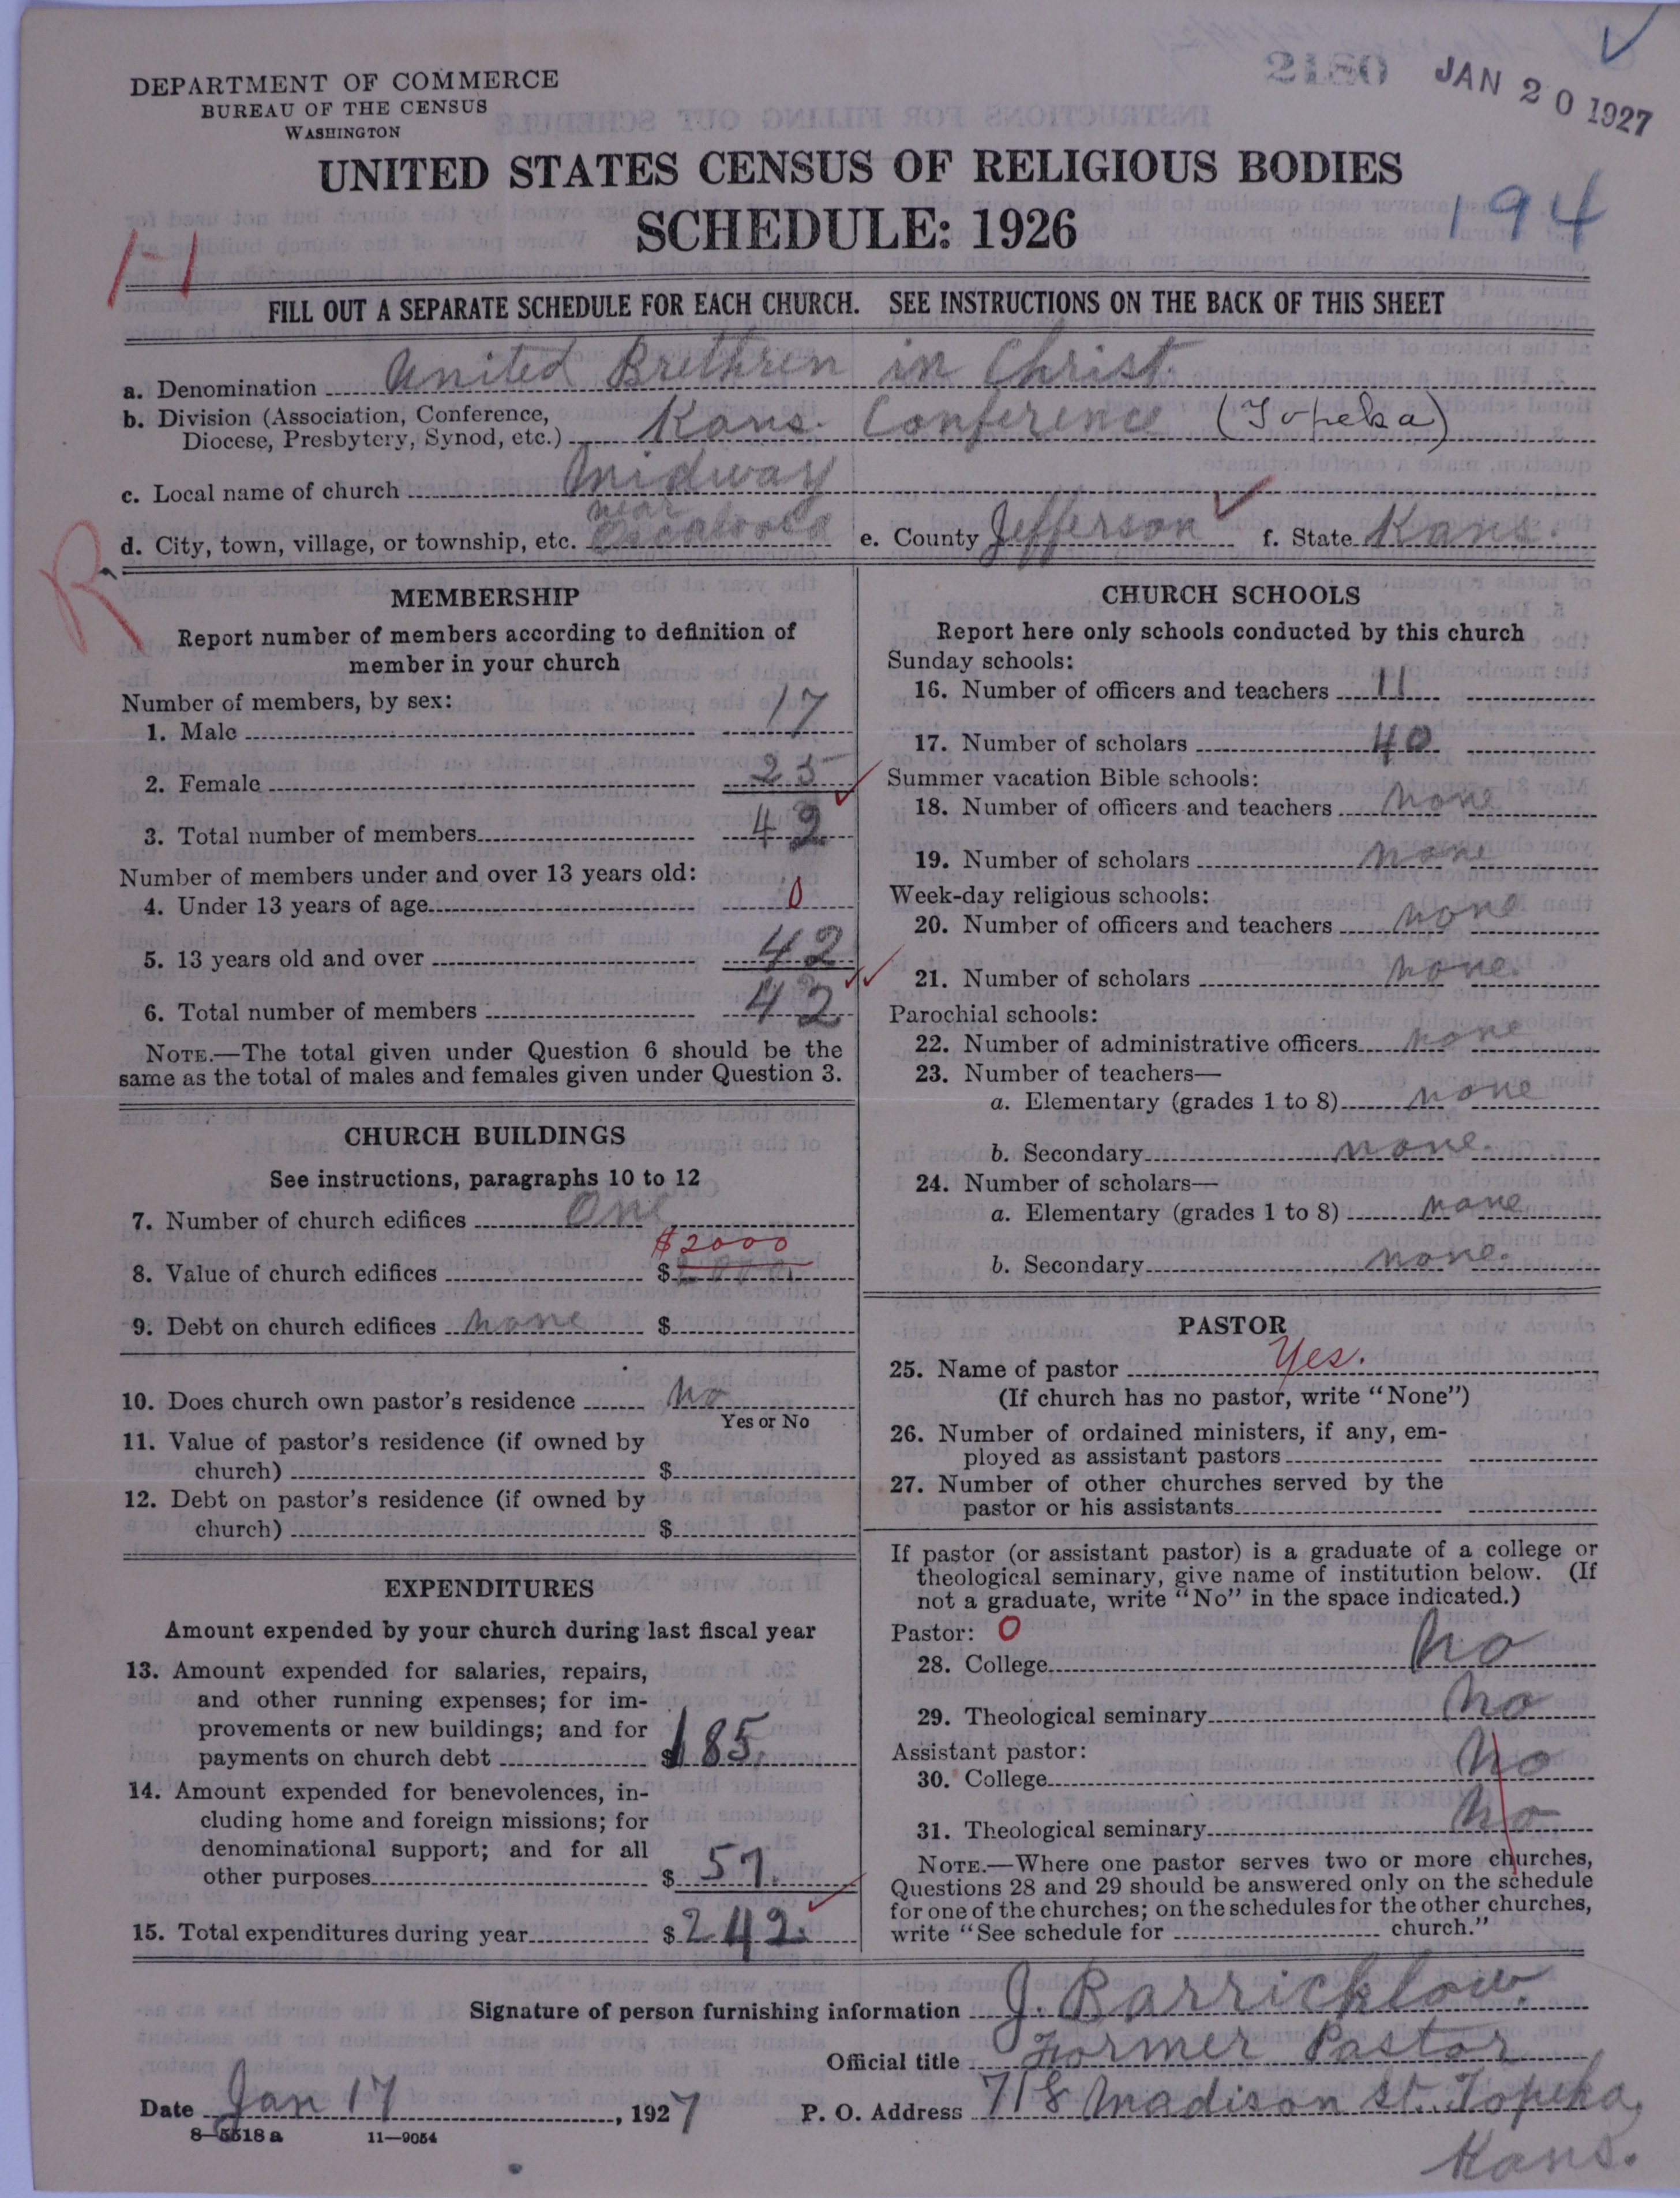 2180 JAN 20 1927
DEPARTMENT OF COMMERCE
BUREAU OF THE CENSUS
WASHINGTON
UNITED STATES CENSUS OF RELIGIOUS BODIES
SCHEDULE: 1926
194
H
FILL OUT A SEPARATE SCHEDULE FOR EACH CHURCH. SEE INSTRUCTIONS ON THE BACK OF THIS SHEET
a. Denomination United Brethren in Christ.
b. Division (Association, Conference,
Diocese, Presbytery, Synod, etc.) Kans. Conference (Topeka)
c. Local name of church Midway
near
d. City, town, village, or township, etc. Oscaloosa e. County Jefferson f. State Kans.
R
MEMBERSHIP
Report number of members according to definition of
member in your church
Number of members, by sex:
1. Male 17
2. Female 25
3. Total number of members 42
Number of members under and over 13 years old:
4. Under 13 years of age 0
5. 13 years old and over 42
6. Total number of members 42
NOTE.—The total given under Question 6 should be the
same as the total of males and females given under Question 3.
CHURCH BUILDINGS
See instructions, paragraphs 10 to 12
7. Number of church edifices One
$2000
8. Value of church edifices $
9. Debt on church edifices none $
10. Does church own pastor's residence No
Yes or No
11. Value of pastor's residence (if owned by
church) $
12. Debt on pastor's residence (if owned by
church) $
EXPENDITURES
Amount expended by your church during last fiscal year
13. Amount expended for salaries, repairs,
and other running expenses; for im-
provements or new buildings; and for
payments on church debt $185.
14. Amount expended for benevolences, in-
cluding home and foreign missions; for
denominational support; and for all
other purposes $57.
15. Total expenditures during year $242.
CHURCH SCHOOLS
Report here only schools conducted by this church
Sunday schools:
16. Number of officers and teachers 11
17. Number of scholars 40
Summer vacation Bible schools:
18. Number of officers and teachers none
19. Number of scholars none
Week-day religious schools:
20. Number of officers and teachers none
21. Number of scholars none.
Parochial schools:
22. Number of administrative officers none
23. Number of teachers—
a. Elementary (grades 1 to 8) none
b. Secondary none.
24. Number of scholars—
a. Elementary (grades 1 to 8) none
b. Secondary none.
PASTOR
25. Name of pastor Yes.
(If church has no pastor, write "None")
26. Number of ordained ministers, if any, em-
ployed as assistant pastors
27. Number of other churches served by the
pastor or his assistants
If pastor (or assistant pastor) is a graduate of a college or
theological seminary, give name of institution below. (If
not a graduate, write "No" in the space indicated.)
Pastor: 0
28. College No
29. Theological seminary No
Assistant pastor:
30. College No
31. Theological seminary No
NOTE.—Where one pastor serves two or more churches,
Questions 28 and 29 should be answered only on the schedule
for one of the churches; on the schedules for the other churches,
write "See schedule for church."
Signature of person furnishing information J. Barricklow.
Official title Former Pastor
Date Jan 17, 1927 P. O. Address 718 Madison St. Topeka,
Kans.
8—5518 a 11—9054